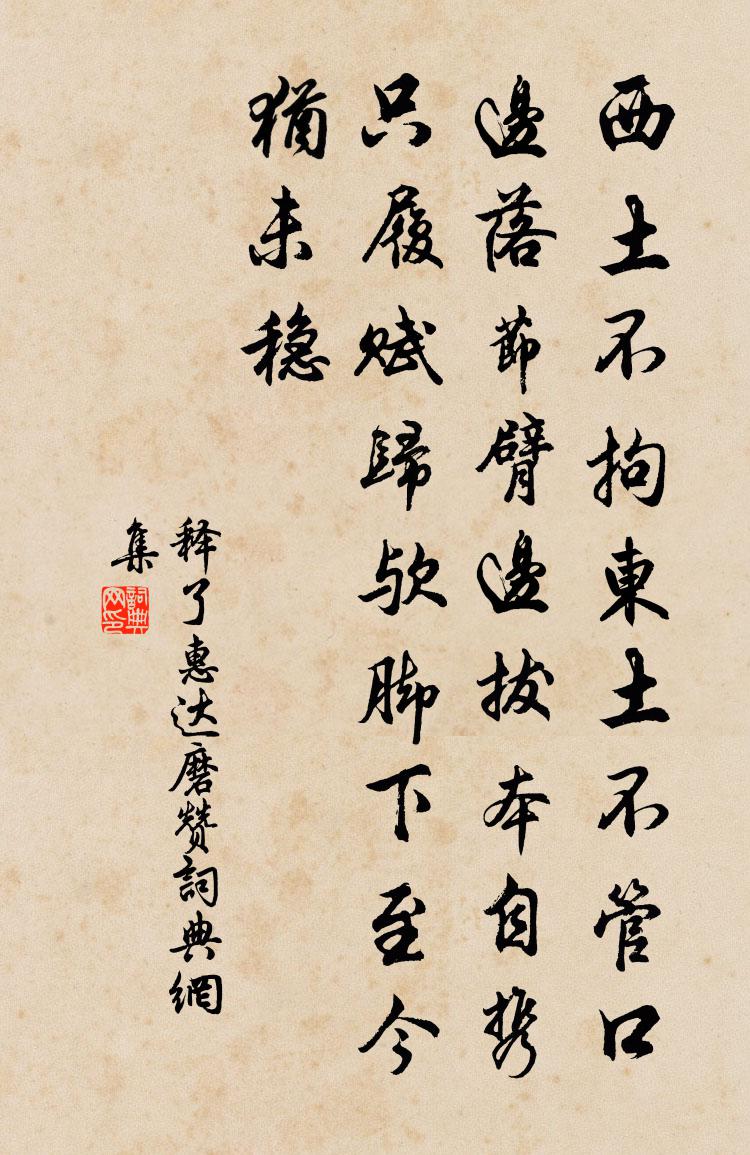 西土不拘東土不管口
邊落節臂邊拔本自携
只履賦歸欤脚下至今
猶未穏
释了惠达磨赞詞典網
集
詞典
网印